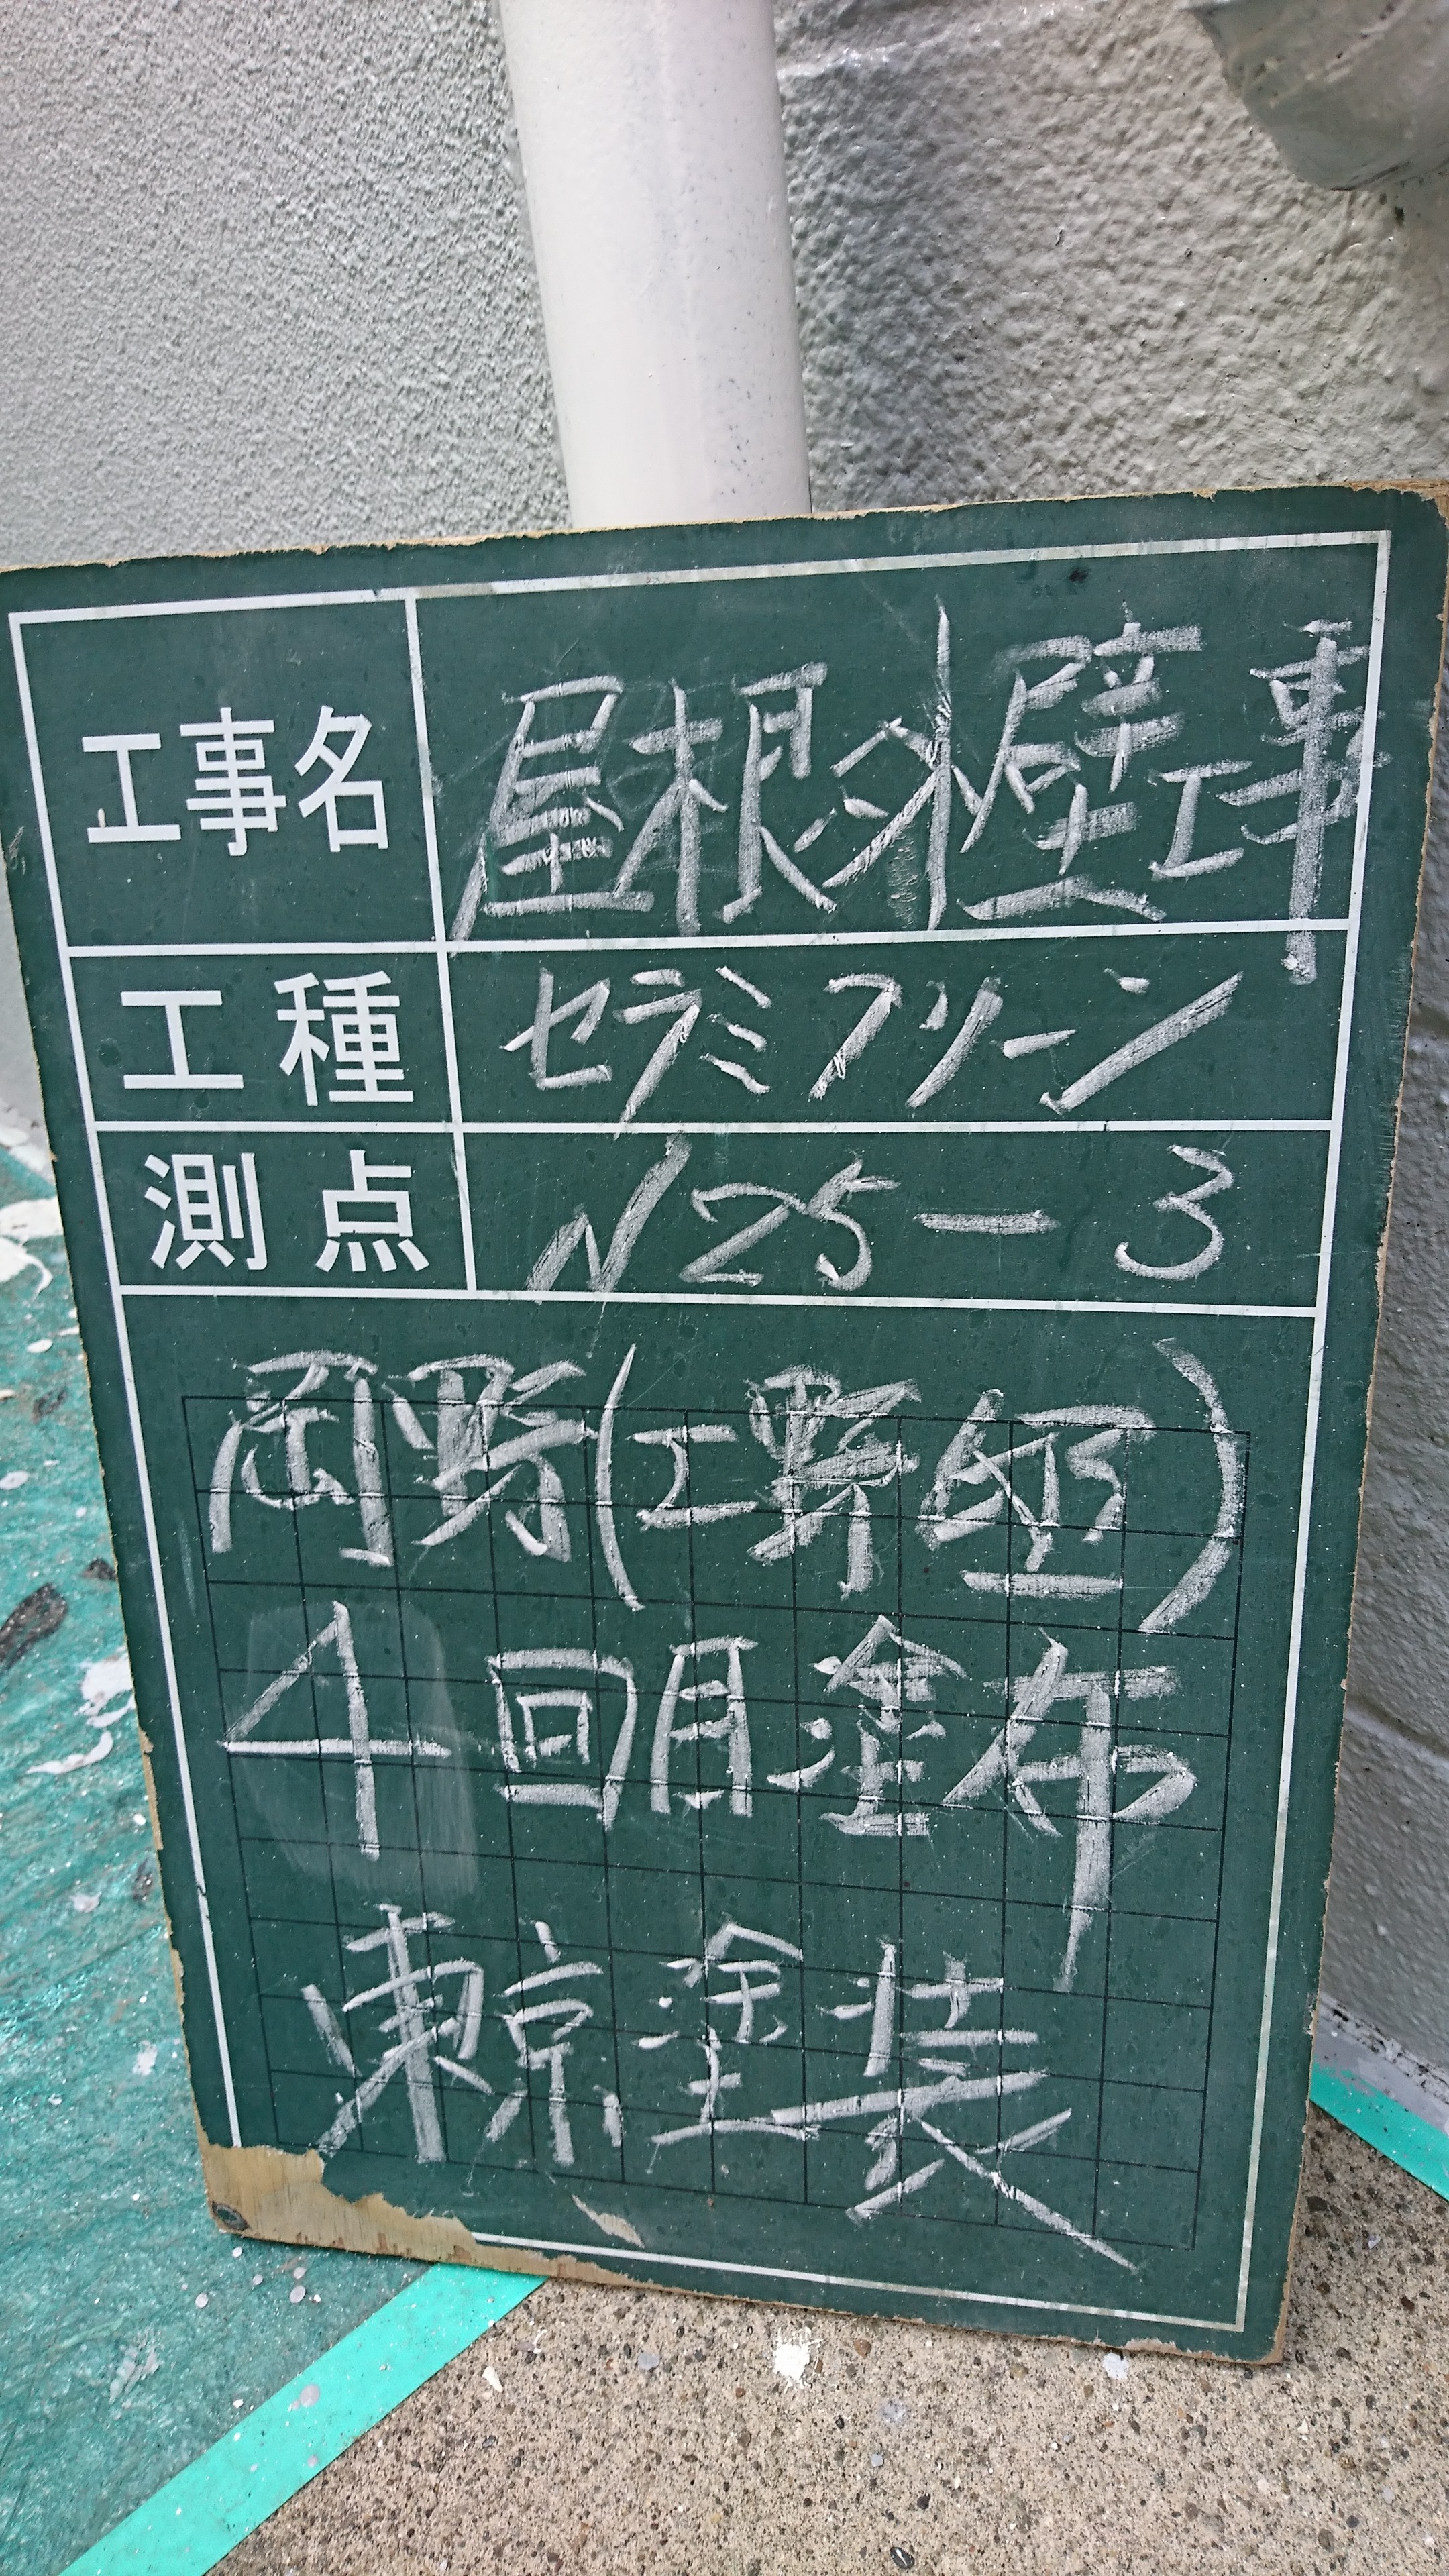 工事名 屋根外壁工事
工種 セラミクリーン
測点 N25-3
岡野(工野
4回目塗布
東京塗装